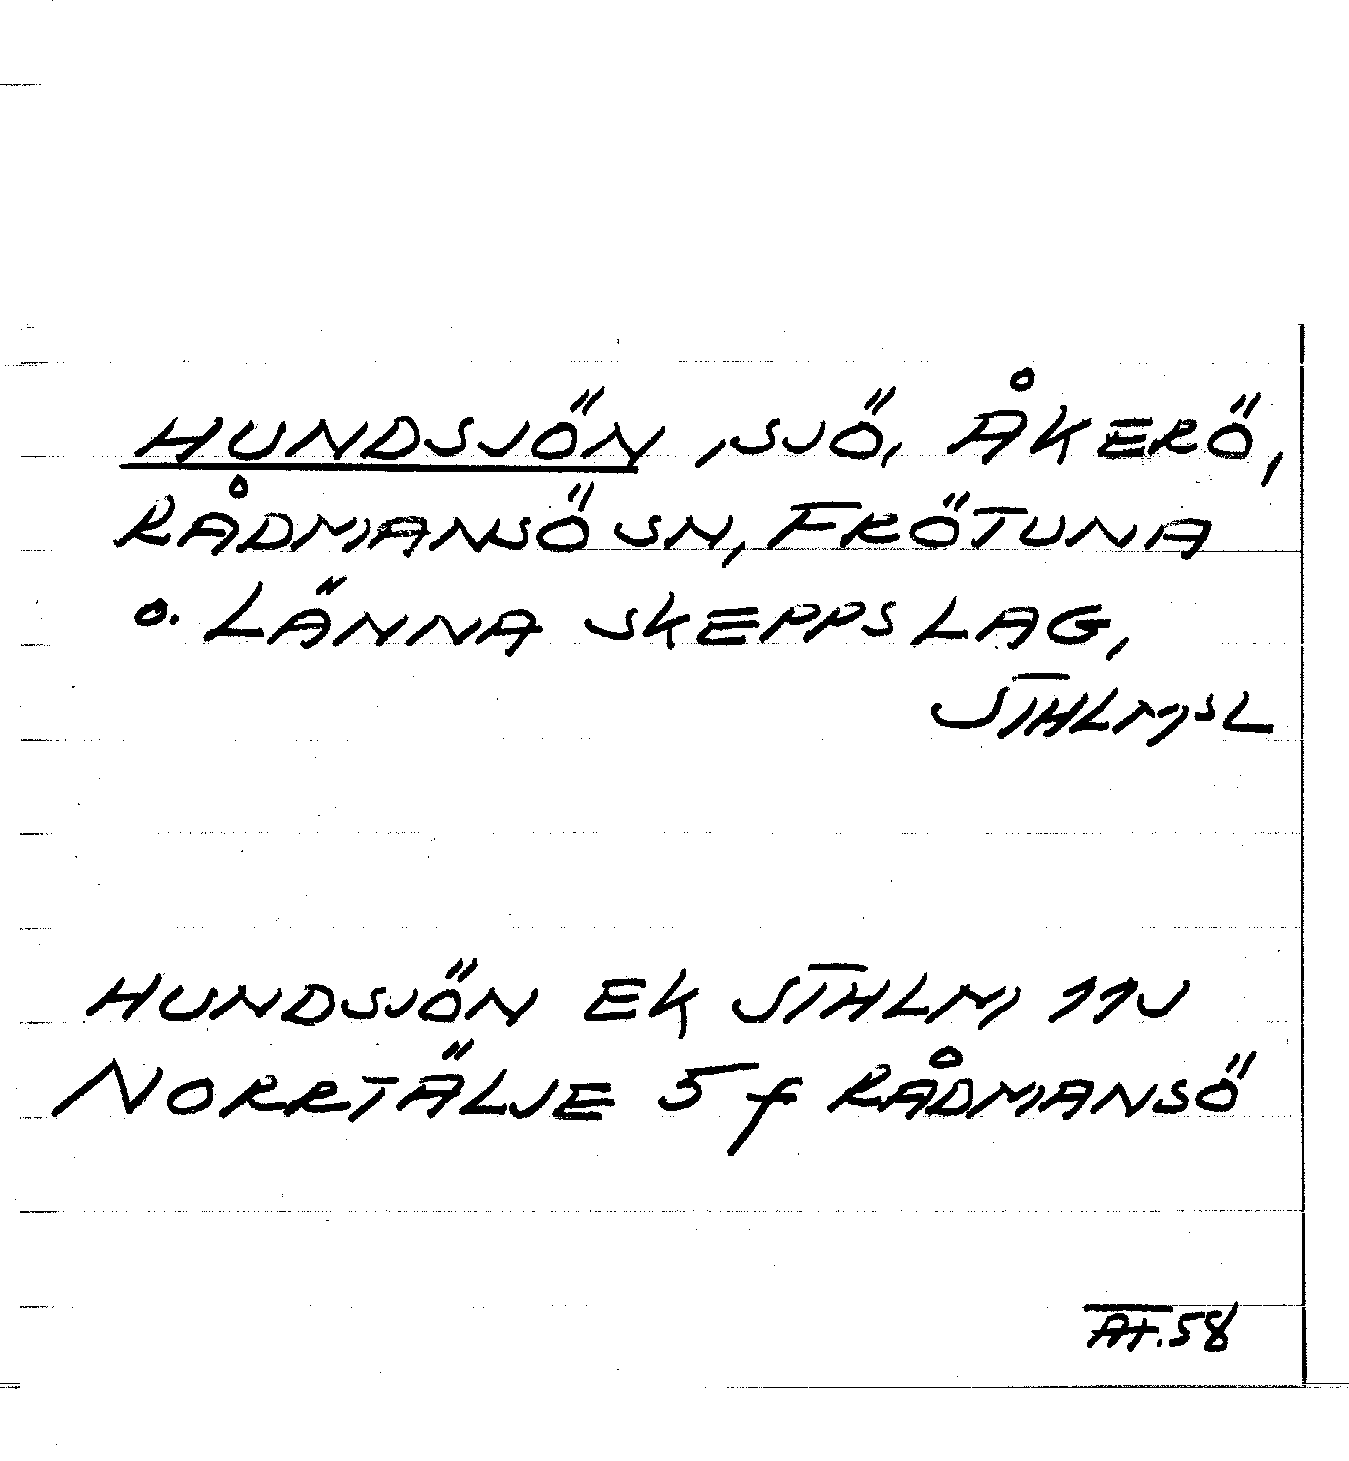 HUNDSJÖN, SJÖ, ÅKERÖ,
RÅDMANSÖ SN, FRÖTUNA
o. LÄNNA SKEPPSLAG,
STHLMSL
HUNDSJÖN EK STHLM 11J
NORRTÄLJE 5f RÅDMANSÖ
58